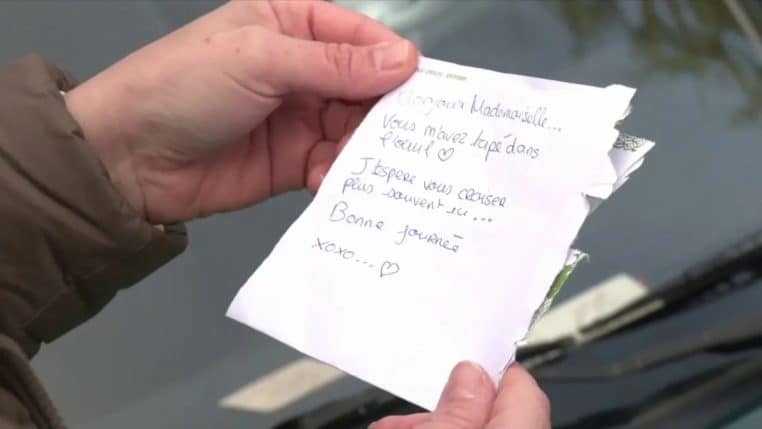 Bonjour Mademoiselle...
Vous m'avez tapé dans
l'oeuil ♡
J'espere vous croiser
plus souvent ici...
Bonne journée
xoxo...♡